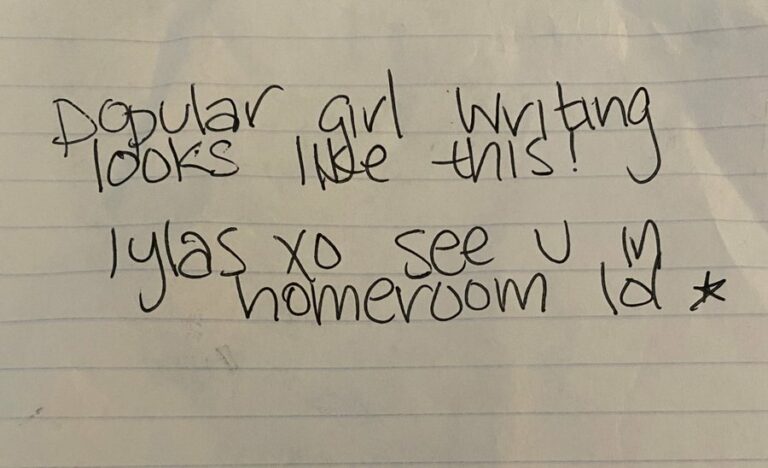 popular girl writing
looks like this!
lylas xo see u in
homeroom lol ★